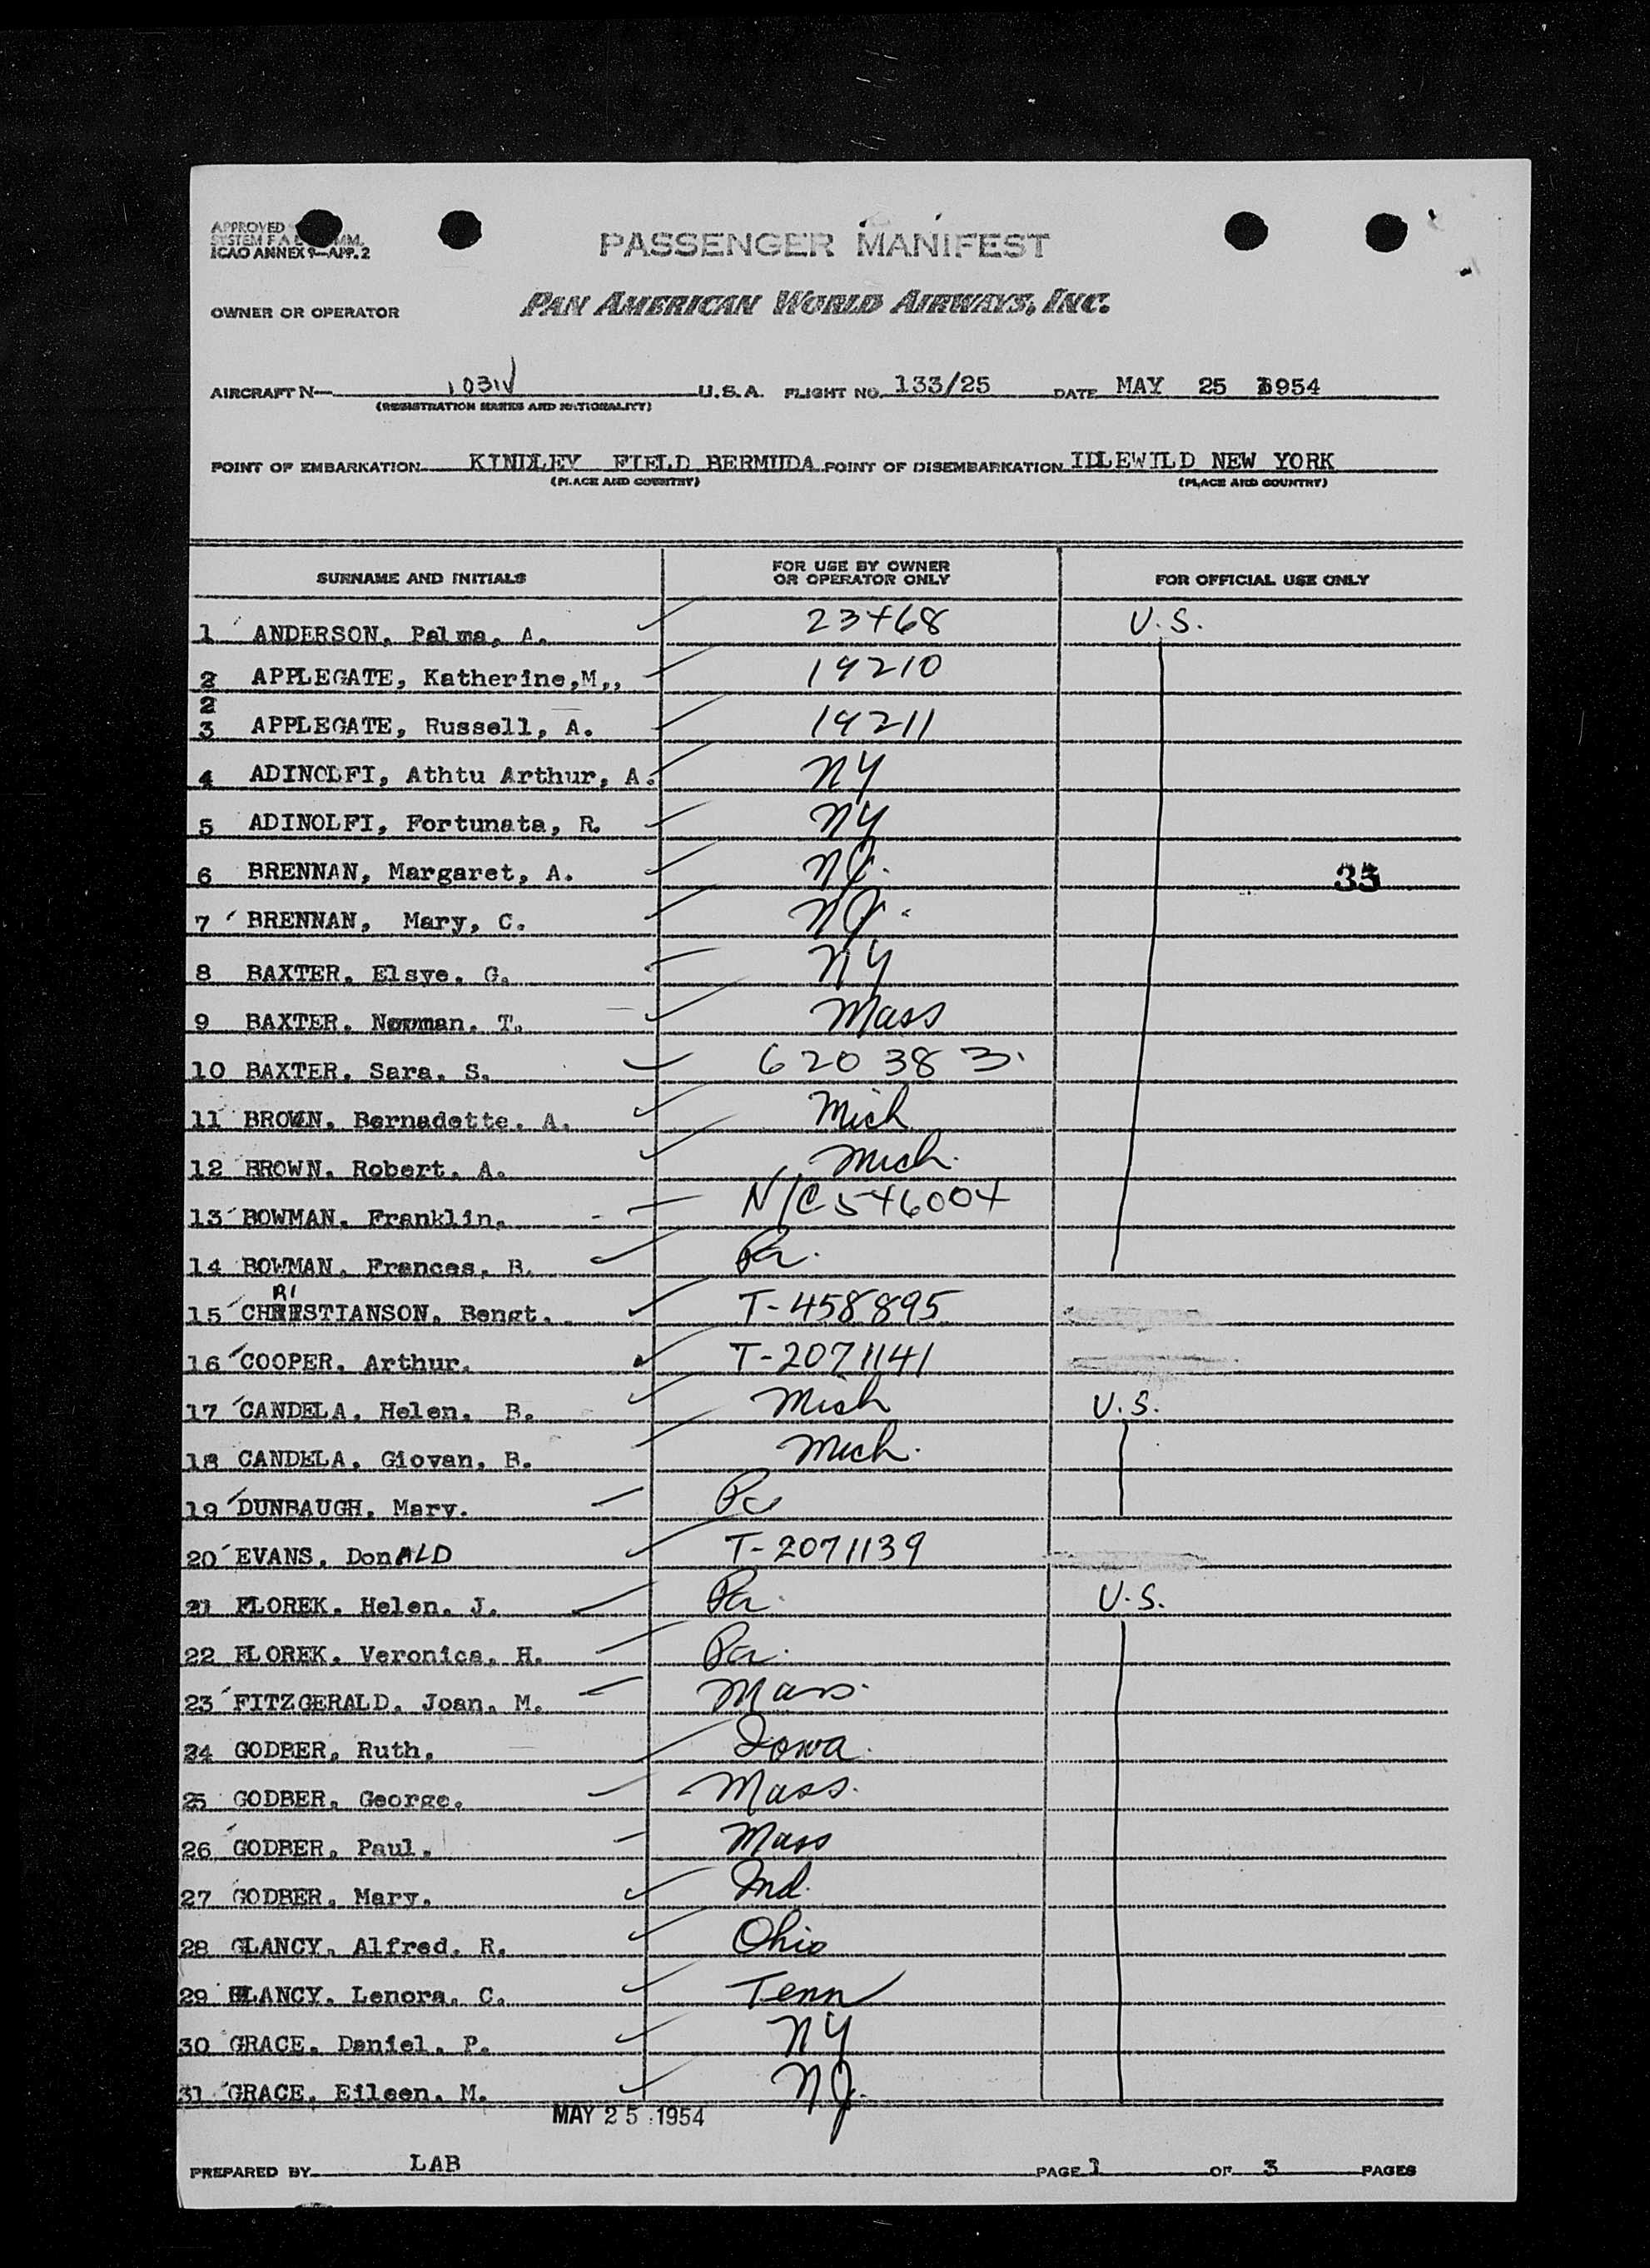 APPROVED
SYSTEM F A & COMM.
ICAO ANNEX 9—APP. 2
PASSENGER MANIFEST
OWNER OR OPERATOR PAN AMERICAN WORLD AIRWAYS, INC.
AIRCRAFT N— 1031V U.S.A. FLIGHT NO. 133/25 DATE MAY 25 1954
(REGISTRATION MARKS AND NATIONALITY)
POINT OF EMBARKATION KINDLEY FIELD BERMUDA POINT OF DISEMBARKATION IDLEWILD NEW YORK
(PLACE AND COUNTRY) (PLACE AND COUNTRY)
SURNAME AND INITIALS FOR USE BY OWNER OR OPERATOR ONLY FOR OFFICIAL USE ONLY
1 ANDERSON, Palma, A. 23468 U.S.
2 APPLEGATE, Katherine,M,, 19210
2
3 APPLEGATE, Russell, A. 19211
4 ADINOLFI, Athtu Arthur, A. NY
5 ADINOLFI, Fortunata, R. NY
6 BRENNAN, Margaret, A. NJ. 33
7 BRENNAN, Mary, C. NJ.
8 BAXTER, Elsye, G. NY
9 BAXTER, Newman, T. Mass
10 BAXTER, Sara, S. 620383
11 BROWN, Bernadette, A. Mich
12 BROWN, Robert, A. Mich.
13 BOWMAN, Franklin, N/C 546004
14 BOWMAN, Frances, B. Pa.
15 CHRISTIANSON, Bengt. T-458895
16 COOPER, Arthur. T-2071141
17 CANDELA, Helen, B. Mich U.S.
18 CANDELA, Giovan, B. Mich.
19 DUNBAUGH, Mary. Pa
20 EVANS, DonALD T-2071139
21 FLOREK, Helen, J. Pa. U.S.
22 FLOREK, Veronica, H. Pa.
23 FITZGERALD, Joan, M. Mass.
24 GODBER, Ruth, Iowa.
25 GODBER, George, Mass.
26 GODBER, Paul, Mass
27 GODBER, Mary, Ind.
28 GLANCY, Alfred, R. Ohio
29 GLANCY, Lenora, C. Tenn
30 GRACE, Daniel, P. NY
31 GRACE, Eileen, M. NJ.
MAY 25 1954
PREPARED BY LAB PAGE 1 OF 3 PAGES